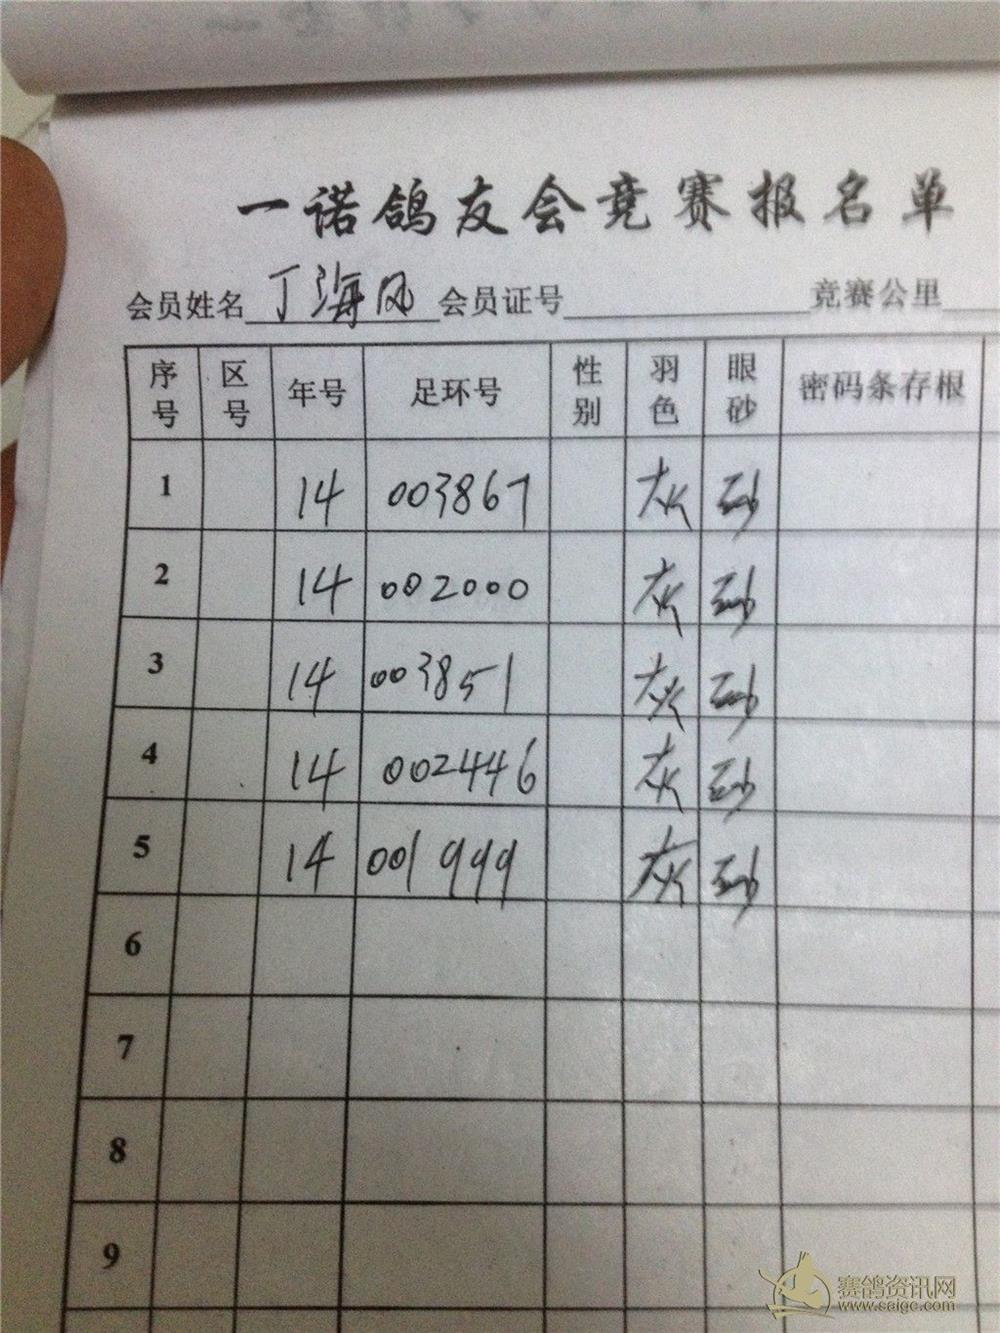 一诺鸽友会竞赛报名单
会员姓名 丁海风 会员证号 竞赛公里
序号 区号 年号 足环号 性别 羽色 眼砂 密码条存根
1 14 003867 灰 砂
2 14 002000 灰 砂
3 14 003851 灰 砂
4 14 002446 灰 砂
5 14 001999 灰 砂
6
7
8
9
赛鸽资讯网
www.saigc.com